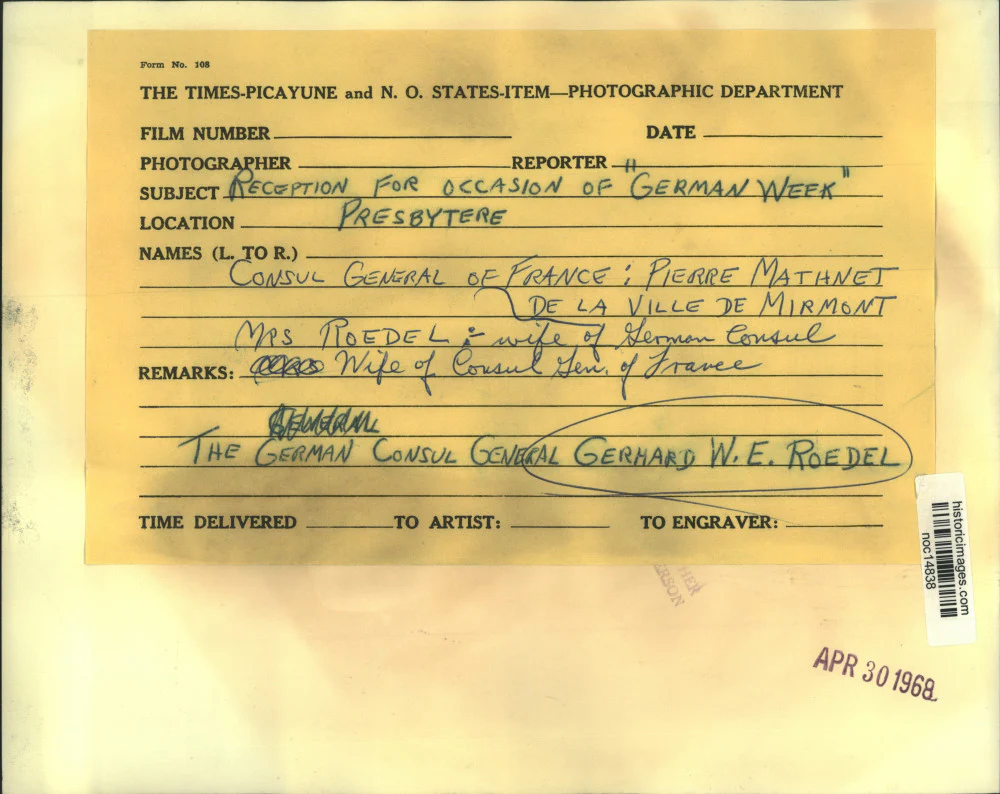 Form No. 108
THE TIMES-PICAYUNE and N. O. STATES-ITEM—PHOTOGRAPHIC DEPARTMENT
FILM NUMBER DATE
PHOTOGRAPHER REPORTER
SUBJECT RECEPTION FOR OCCASION OF "GERMAN WEEK"
LOCATION PRESBYTERE
NAMES (L. TO R.)
CONSUL GENERAL OF FRANCE: PIERRE MATHNET
DE LA VILLE DE MIRMONT
MRS ROEDEL :- wife of German Consul
REMARKS: Wife of Consul Gen. of France
GENERAL
THE GERMAN CONSUL GENERAL GERHARD W. E. ROEDEL
TIME DELIVERED TO ARTIST: TO ENGRAVER:
historicimages.com
noc14838
HER
ERSON
APR 30 1968